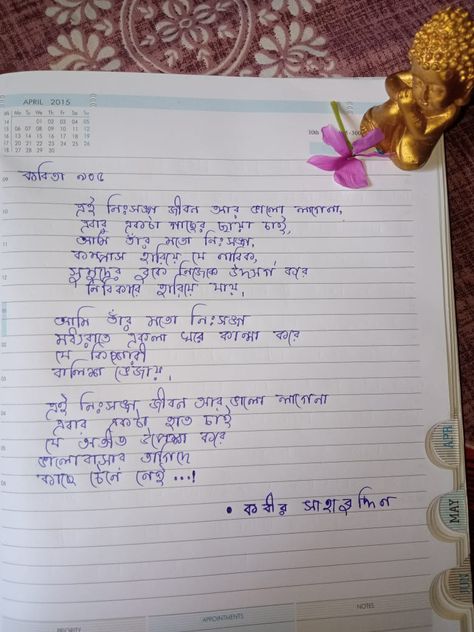 APRIL 2015
Wk Mo Tu We Th Fr Sa Su
14 01 02 03 04 05
15 06 07 08 09 10 11 12
16 13 14 15 16 17 18 19
17 20 21 22 23 24 25 26
18 27 28 29 30
কবিতা ১০৫
এই নিঃসঙ্গ জীবন আর ভালো লাগেনা,
এবার একটা গাছের ছায়া চাই,
আমি তাঁর মতো নিঃসঙ্গ,
কম্পাস হারিয়ে যে নাবিক,
সমুদ্রের বুকে নিজেকে উৎসর্গ করে
নির্বিকারে হারিয়ে যায়,
আমি তাঁর মতো নিঃসঙ্গ
মধ্যরাতে একলা ঘরে কান্না করে
যে কিশোরী
বালিশ ভেজায়,
এই নিঃসঙ্গ জীবন আর ভালো লাগেনা
এবার একটা হাত চাই
যে অতীত উপেক্ষা করে
ভালোবাসার তাগিদে
কাছে টেনে নেই...!
• কবীর সাহাবুদ্দিন
09
10
11
12
02
03
04
05
06
APR
MAY
PRIORITY
APPOINTMENTS
NOTES